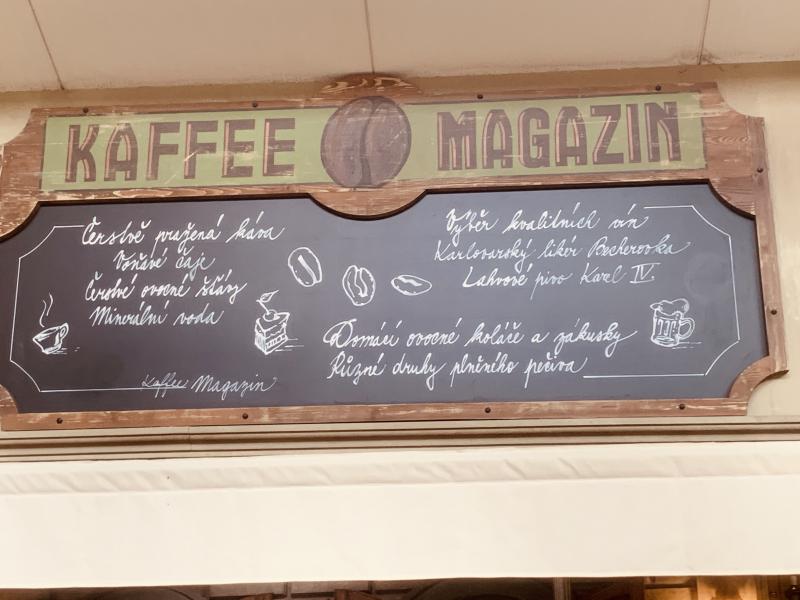 KAFFEE MAGAZIN
Čerstvě pražená káva
Voňavé čaje
Čerstvé ovocné šťávy
Minerální voda
Kaffee Magazin
Výběr kvalitních vín
Karlovarský likér Becherovka
Lahvové pivo Karel IV.
Domácí ovocné koláče a zákusky
Různé druhy plněného pečiva